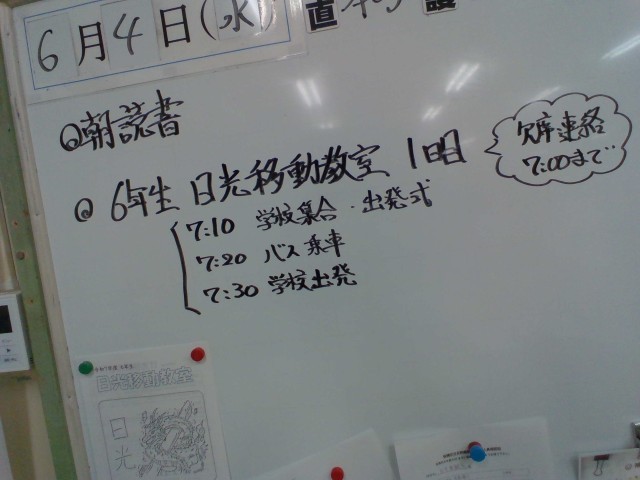 6月4日(水)
◎朝読書
◎6年生 日光移動教室 1日目
欠席連絡
7:00まで
7:10 学校集合・出発式
7:20 バス乗車
7:30 学校出発
日光移動教室
日光